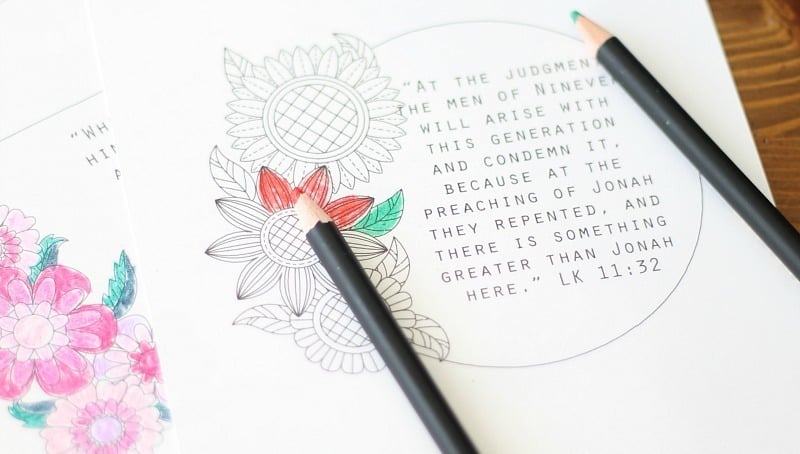 “AT THE JUDGMEN
THE MEN OF NINEVE
WILL ARISE WITH
THIS GENERATION
AND CONDEMN IT,
BECAUSE AT THE
PREACHING OF JONAH
THEY REPENTED, AND
THERE IS SOMETHING
GREATER THAN JONAH
HERE.” LK 11:32